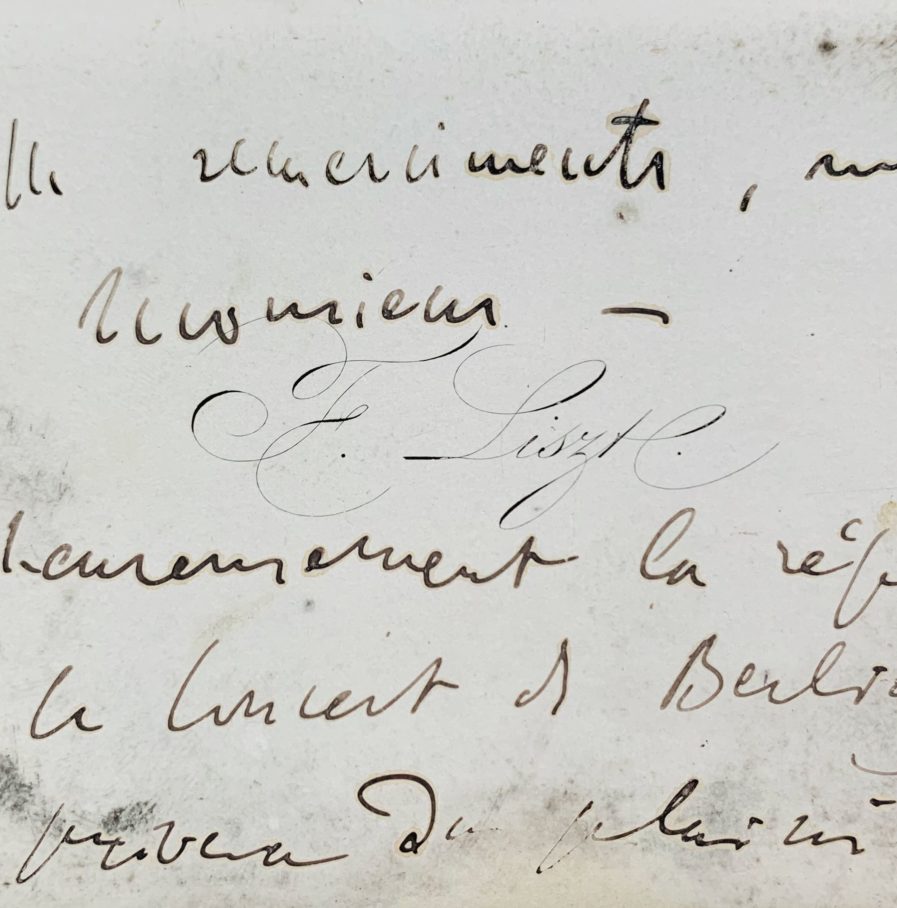 remerciments,
Monsieur —
F. Liszt.
heureusement la
le Concert de Berlio
privera du plaisir